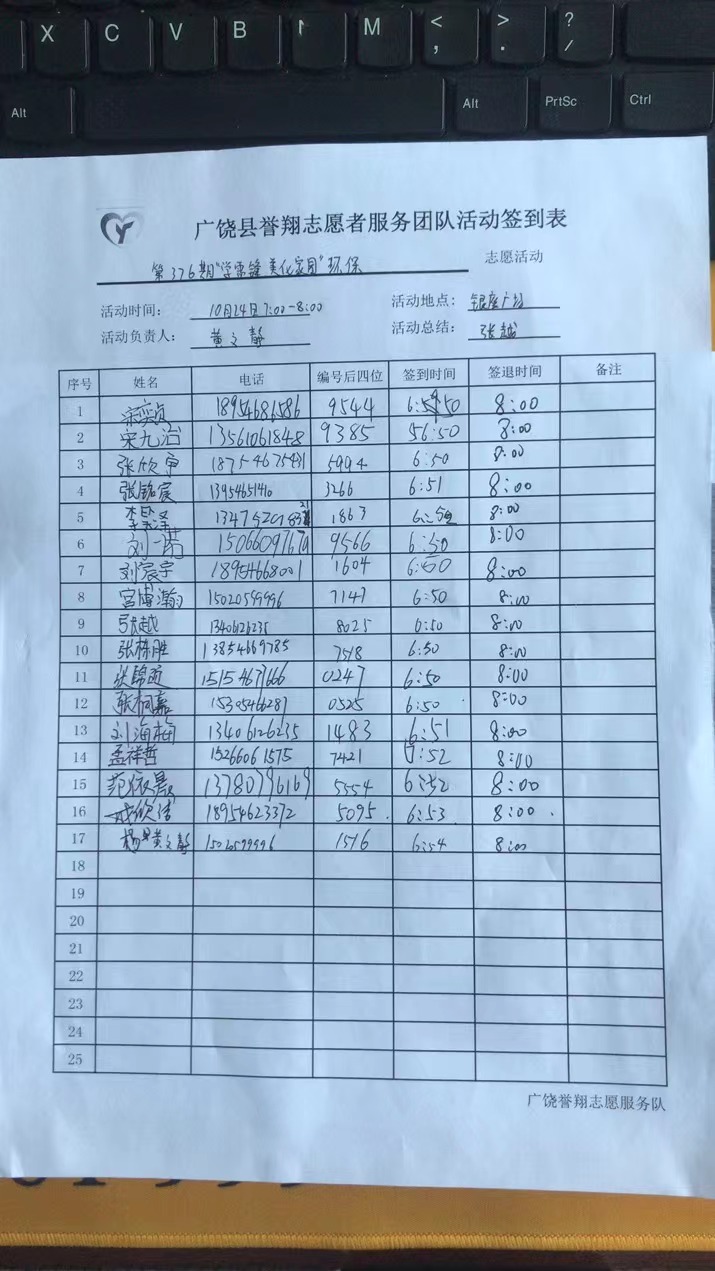 X C V B N M < , > . ? /
Alt Alt PrtSc Ctrl
Y
广饶县誉翔志愿者服务团队活动签到表
第376期"学雷锋 美化家园"环保 志愿活动
活动时间: 10月24日7:00-8:00 活动地点: 银座广场
活动负责人: 黄文静 活动总结: 张越
序号 姓名 电话 编号后四位 签到时间 签退时间 备注
1 宋奕贞 18954686586 9544 50 8:00
2 宋九治 13561061848 9385 56:50 8:00
3 张欣宇 5994 6:50 8:00
4 张铭宸 13954651410 3266 6:51 8:00
5 1863 8:00
6 刘一诺 9566 6:50 8:00
7 刘宸宇 18954668001 1604 6:50 8:00
8 宫博瀚 15020599996 7147 6:50 8:00
9 张越 13406126235 8025 6:50 8:00
10 张栋胜 13854669785 7518 6:50 8:00
11 15154671666 0247 6:50 8:00
12 张桐嘉 15305466287 0525 6:50 8:00
13 刘海梅 13406126235 1483 6:51 8:00
14 孟祥哲 15266061575 7421 :52 8:00
15 范依晨 13780796169 5554 6:52 8:00
16 18954623372 5095 6:53 8:00
17 黄文静 15020599996 1516 6:54 8:00
18
19
20
21
22
23
24
25
广饶誉翔志愿服务队